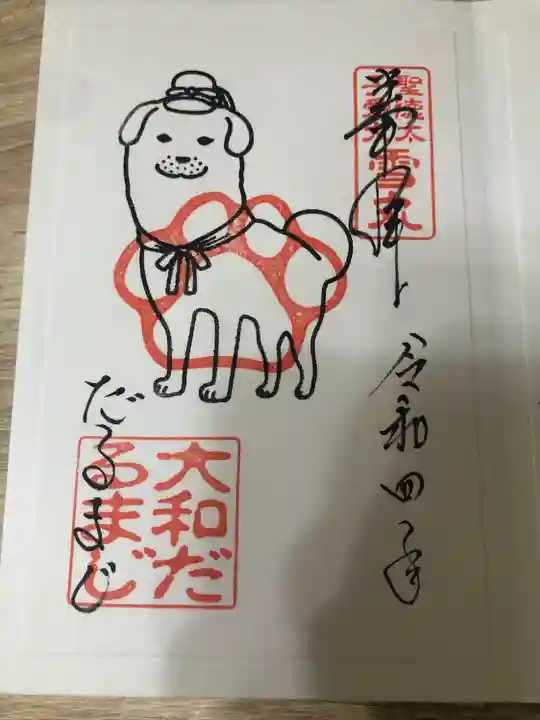 奉拝
聖徳太
子愛犬
雪丸
令和四年
大和だ
るまじ
だるまじ